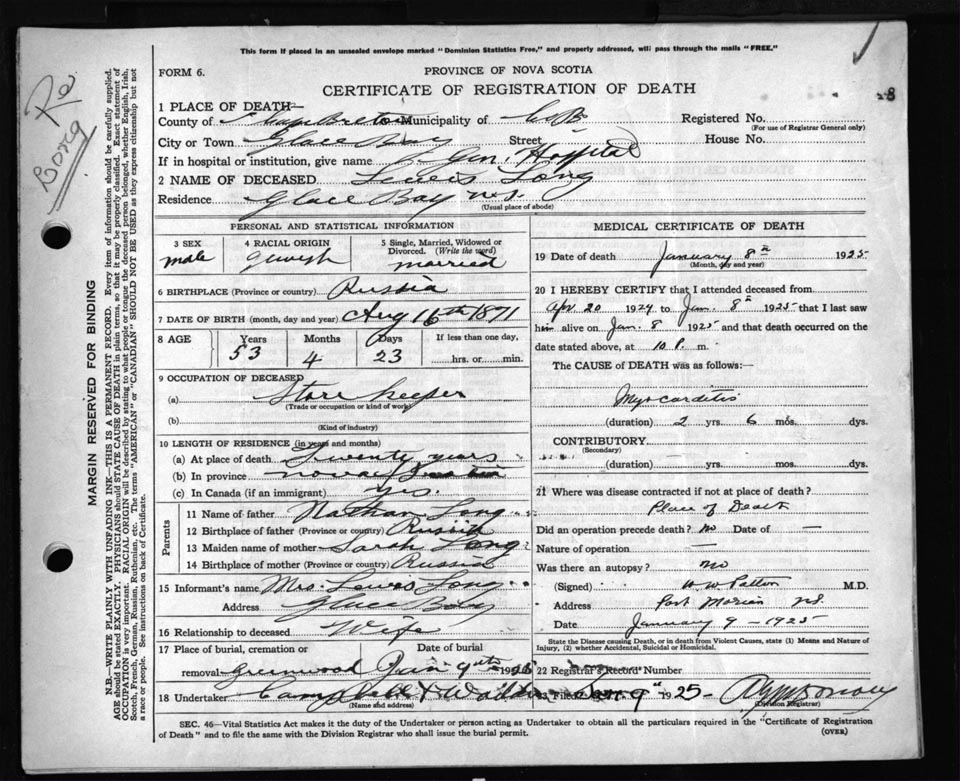 This form if placed in an unsealed envelope marked "Dominion Statistics Free," and properly addressed, will pass through the mails "FREE."
FORM 6.
PROVINCE OF NOVA SCOTIA
CERTIFICATE OF REGISTRATION OF DEATH
1 PLACE OF DEATH—
County of Cape Breton Municipality of C.B. Registered No.
(For use of Registrar General only)
City or Town Glace Bay Street House No.
If in hospital or institution, give name Gen. Hospital
2 NAME OF DECEASED Lewis Long
Residence Glace Bay N.S.
(Usual place of abode)
PERSONAL AND STATISTICAL INFORMATION
3 SEX male
4 RACIAL ORIGIN Jewish
5 Single, Married, Widowed or Divorced. (Write the word) married
6 BIRTHPLACE (Province or country) Russia
7 DATE OF BIRTH (month, day and year) Aug 16th 1871
8 AGE Years Months Days If less than one day,
53 4 23 hrs. or min.
9 OCCUPATION OF DECEASED
(a) Store Keeper
(Trade or occupation or kind of work)
(b)
(Kind of industry)
10 LENGTH OF RESIDENCE (in years and months)
(a) At place of death Twenty years
(b) In province
(c) In Canada (if an immigrant) yes.
Parents
11 Name of father Nathan Long
12 Birthplace of father (Province or country) Russia
13 Maiden name of mother Sarah Long
14 Birthplace of mother (Province or country) Russia
15 Informant's name Mrs. Lewis Long
Address Glace Bay
16 Relationship to deceased Wife
17 Place of burial, cremation or Date of burial
removal Greenwood Jan 9th 1925
18 Undertaker Campbell & Walker
(Name and address)
MEDICAL CERTIFICATE OF DEATH
19 Date of death January 8th 1925
(Month, day and year)
20 I HEREBY CERTIFY that I attended deceased from
Apr. 20 1924 to Jan. 8th 1925 that I last saw
him alive on Jan. 8 1925 and that death occurred on
date stated above, at 10 P. m.
The CAUSE of DEATH was as follows:—
Myocarditis
(duration) 2 yrs. 6 mos. dys.
CONTRIBUTORY.
(Secondary)
(duration) yrs. mos. dys.
21 Where was disease contracted if not at place of death?
Place of Death
Did an operation precede death? no Date of —
Nature of operation —
Was there an autopsy? no
(Signed) M.D.
Address Port Morien N.S.
Date January 9 - 1925
State the Disease causing Death, or in death from Violent Causes, state (1) Means and Nature of
Injury, (2) whether Accidental, Suicidal or Homicidal.
22 Registrar's Record Number
23 Filed Jan 9" 1925
(Division Registrar)
SEC. 46—Vital Statistics Act makes it the duty of the Undertaker or person acting as Undertaker to obtain all the particulars required in the "Certificate of Registration
of Death" and to file the same with the Division Registrar who shall issue the burial permit.
(OVER)
MARGIN RESERVED FOR BINDING
N.B.—WRITE PLAINLY WITH UNFADING INK—THIS IS A PERMANENT RECORD. Every item of information should be carefully supplied.
AGE should be stated EXACTLY. PHYSICIANS should STATE CAUSE OF DEATH in plain terms, so that it may be properly classified. Exact statement of
OCCUPATION is very important. RACIAL ORIGIN will be described by stating to what people or tongue the deceased person belonged, whether English, Irish,
Scotch, French, German, Russian, Ruthenian, etc. The terms "AMERICAN" or "CANADIAN" SHOULD NOT BE USED as they express citizenship but not
a race or people. See instructions on back of Certificate.